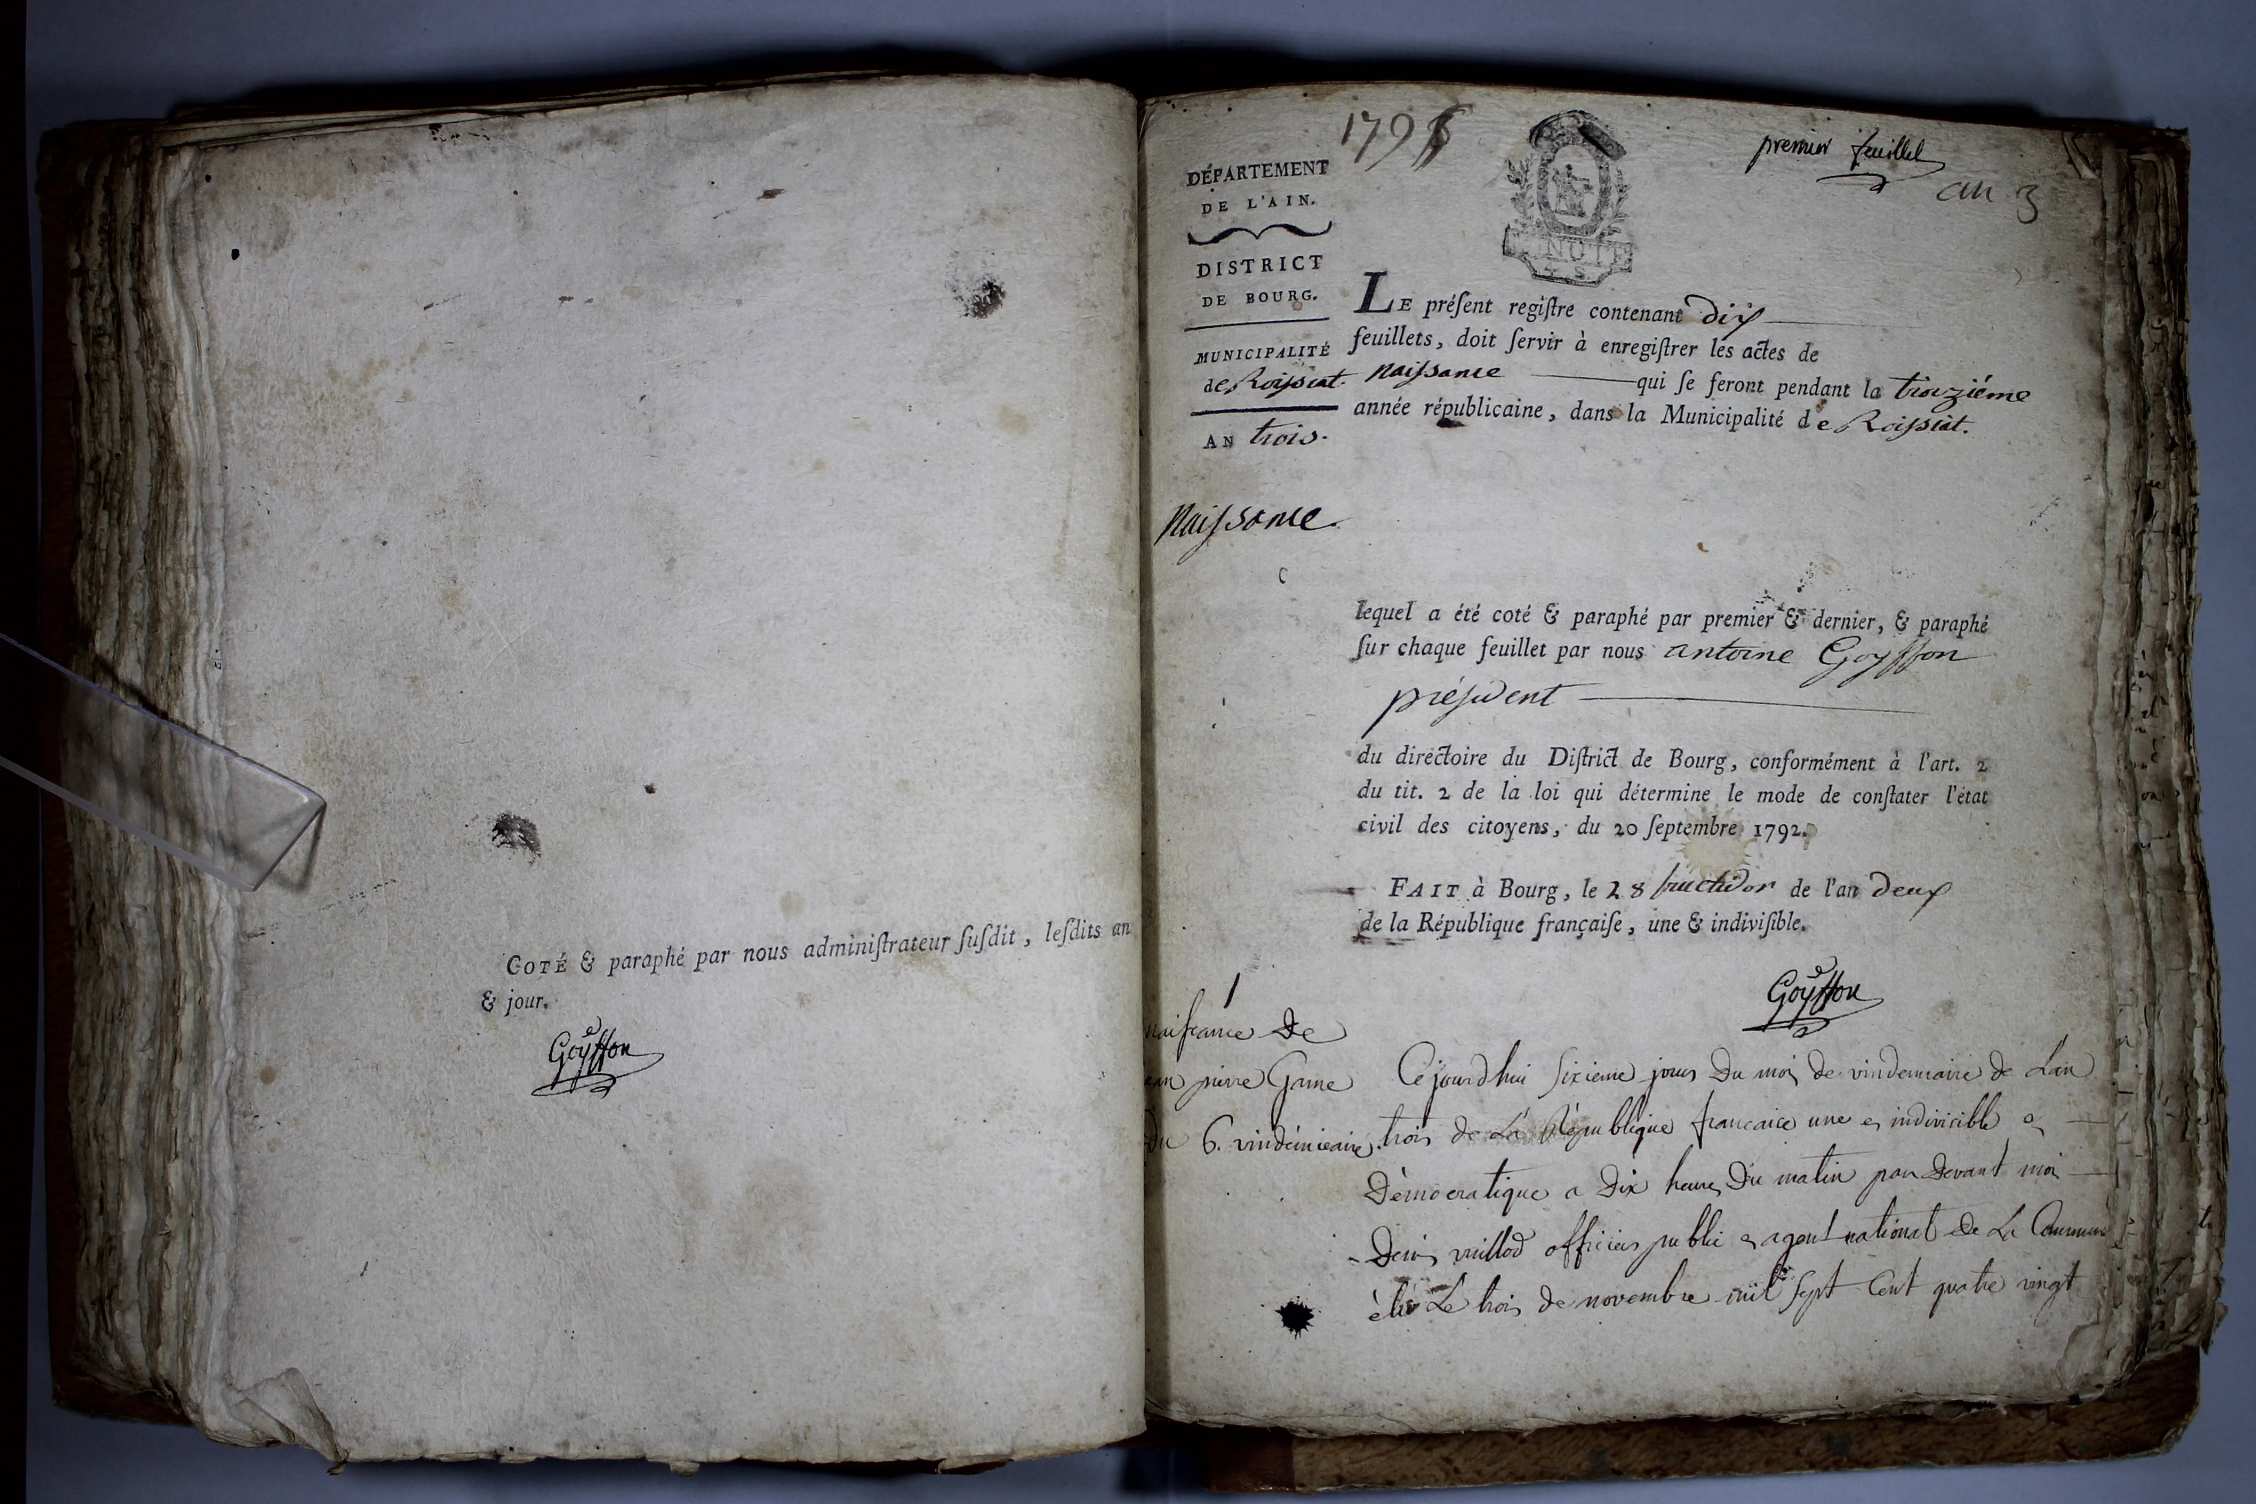 COTÉ & paraphé par nous adminiſtrateur ſuſdit, leſdits an
& jour.
Goyffon
1795
premier feuillet
an 3
DÉPARTEMENT
DE L'AIN.
DISTRICT
DE BOURG.
MUNICIPALITÉ
de Roissiat.
AN trois.
Naissance.
LE préſent regiſtre contenant dix
feuillets, doit ſervir à enregiſtrer les actes de
Naissance qui ſe feront pendant la troiziéme
année républicaine, dans la Municipalité de Roissiat.
lequel a été coté & paraphé par premier & dernier, & paraphé
ſur chaque feuillet par nous antoine Goyffon
président
du directoire du Diſtrict de Bourg, conformément à l'art. 2
du tit. 2 de la loi qui détermine le mode de conſtater l'état
civil des citoyens, du 20 ſeptembre 1792.
FAIT à Bourg, le 28 fructidor de l'an deux
de la République françaiſe, une & indiviſible.
Goyffon
1
naissance de
ean pierre Game
du 6. vindémieaire
Cejourdhui sixieme jours du mois de vindemiaire de Lan
trois de La République francaise une et indivisible et
démocratique a dix heures du matin par devant moi
Denis millod officier public et agent national de La Commune
èlu Le trois de novembre mil sept cent quatre vingt